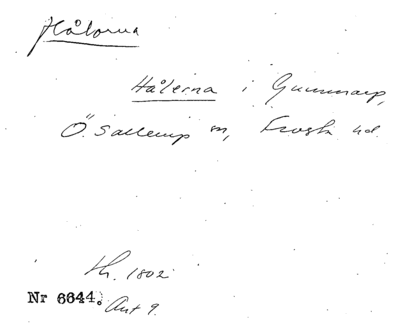 Hålorna
Hålerna i Gunnarp,
Ö. Sallerup sn, Frosta hd.
th. 1802
Nr 6644. Aut 9.